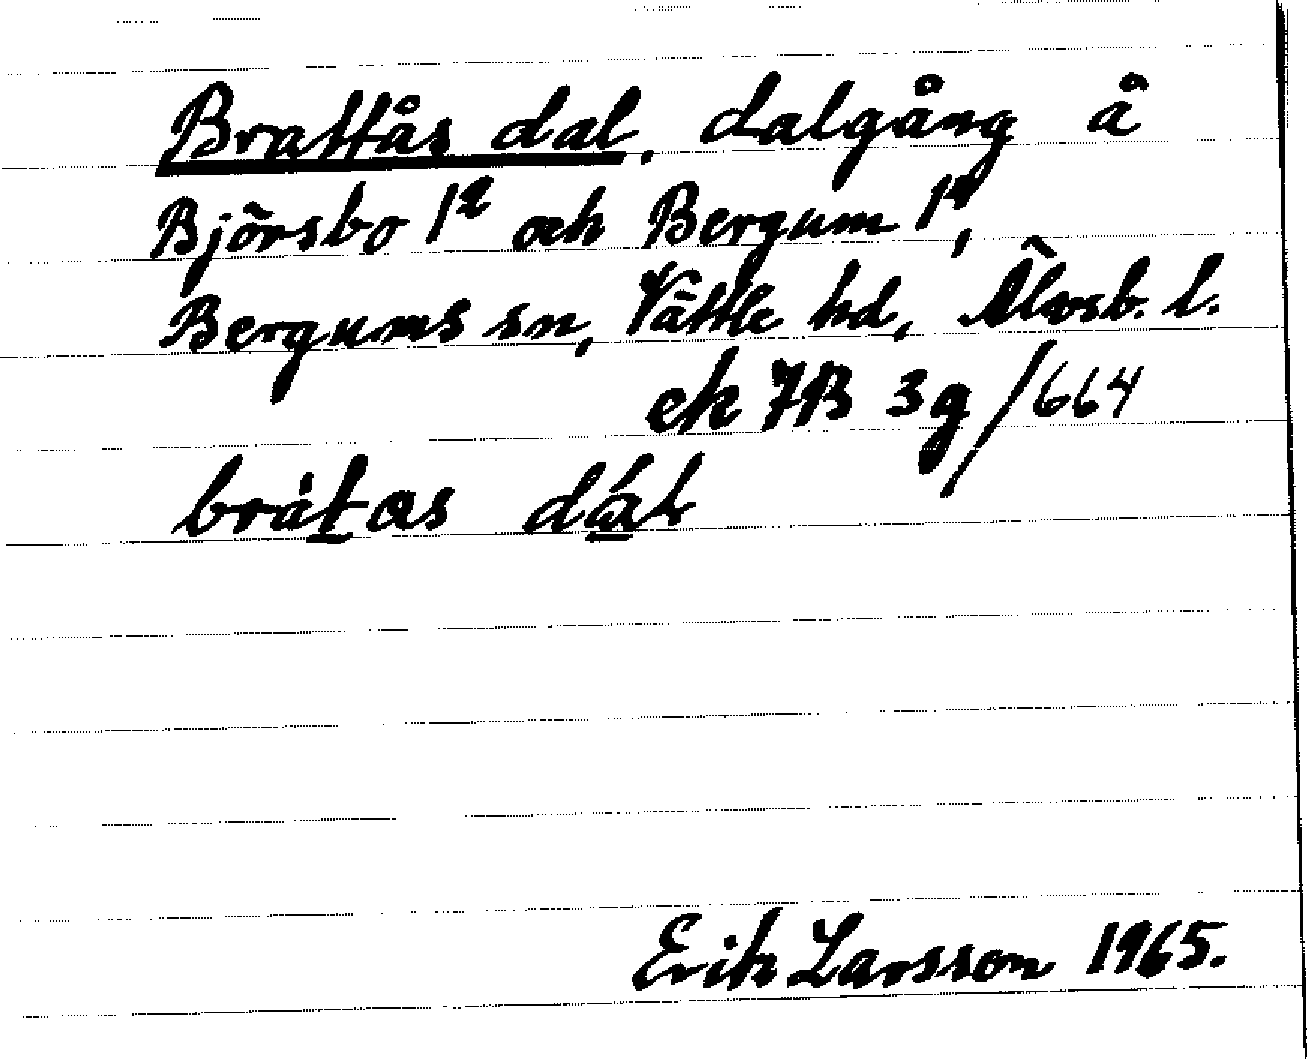 Brattås dal, dalgång å
Björsbo 1² och Bergum 1¹,
Bergums sn, Vättle hd, Älvsb. l.
ek 7B 3g/664
bràt as dál
Erik Larsson 1965.